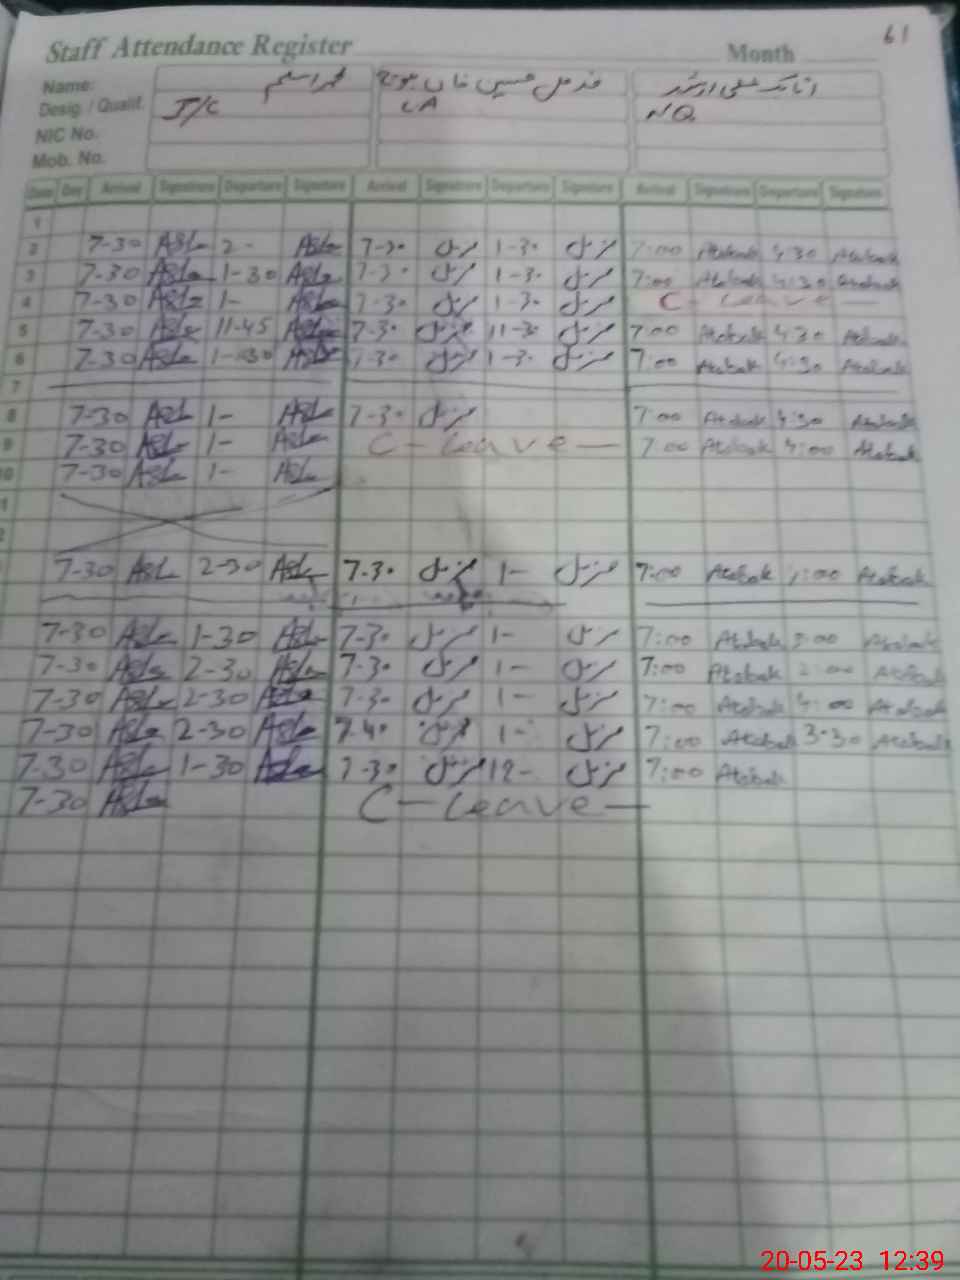 61
Staff Attendance Register Month
Name: محمد اسلم مزمل حسین خاں بلوچ اتابک علی ارشد
Desig. / Qualif. J/C LA NQ
NIC No.
Mob. No.
Date Day Arrival Signature Departure Signature Arrival Signature Departure Signature Arrival Signature Departure Signature
1
2 7-30 Asla 2- Asla 7-30 مزمل 1-30 مزمل 7:00 Atabak 4:30 Atabak
3 7-30 Asla 1-30 Asla 7-30 مزمل 1-30 مزمل 7:00 Atabak 4:30 Atabak
4 7-30 Asla 1- Asla 7-30 مزمل 1-30 مزمل C- Leave —
5 7-30 Asla 11-45 Asla 7-30 مزمل 11-30 مزمل 7:00 Atabak 4:30 Atabak
6 7-30 Asla 1-30 Asla 7-30 مزمل 1-30 مزمل 7:00 Atabak 4:30 Atabak
7
8 7-30 Asla 1- Asla 7-30 مزمل 7:00 Atabak 4:30 Atabak
9 7-30 Asla 1- Asla C- Leave — 7:00 Atabak 4:00 Atabak
10 7-30 Asla 1- Asla
7-30 Asla 2-30 Asla 7-30 مزمل 1- مزمل 7:00 Atabak Atabak
7-30 Asla 1-30 Asla 7-30 مزمل 1- مزمل 7:00 Atabak 3:00 Atabak
7-30 Asla 2-30 Asla 7-30 مزمل 1- مزمل 7:00 Atabak 2:00 Atabak
7-30 Asla 2-30 Asla 7-30 مزمل 1- مزمل 7:00 Atabak 4:00 Atabak
7-30 Asla 2-30 Asla 7-40 مزمل 1- مزمل 7:00 Atabak 3-30 Atabak
7-30 Asla 1-30 Asla 7-30 مزمل 12- مزمل 7:00 Atabak
7-30 Asla C- Leave —
20-05-23 12:39